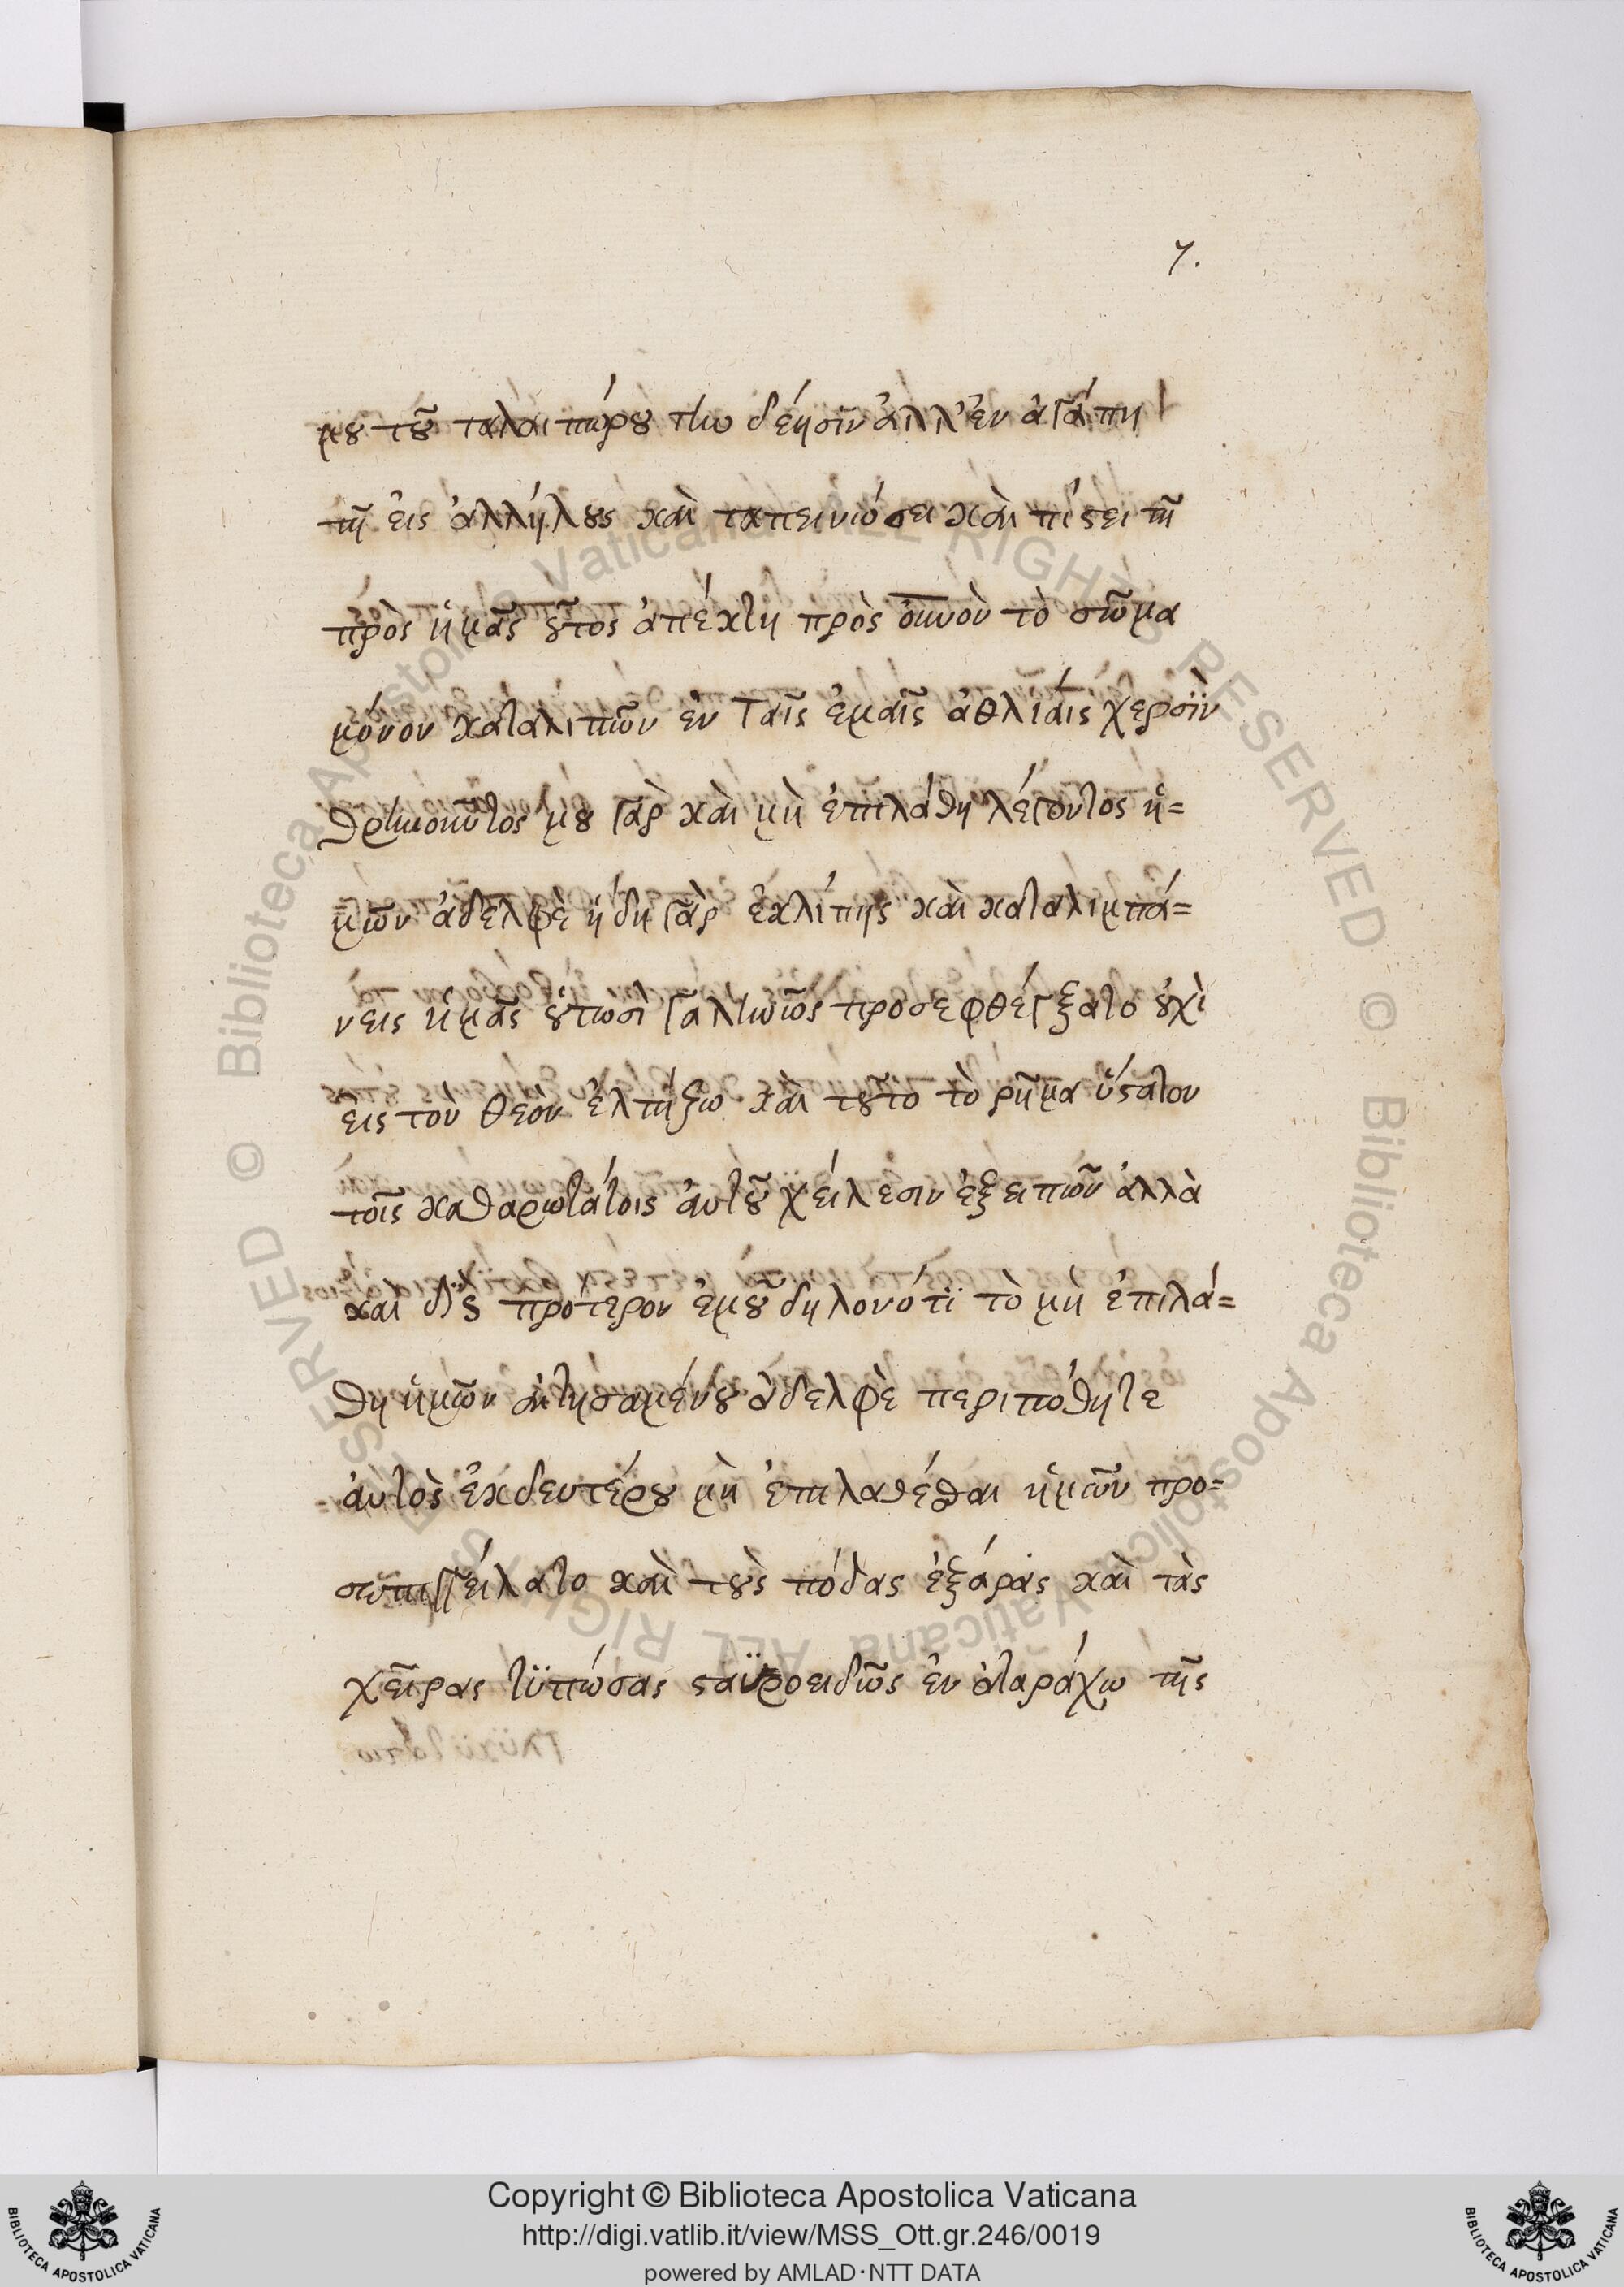 7.
μου τοῦ ταλαιπώρου τὴν δέησϊν ἀλλ' ἐν ἀγάπη
τῆ εις ἀλλήλους καὶ ταπεινώσει καὶ πίστει τῆ
πρὸς ἡμᾶς οὗτος ἀπέκτη πρὸς οὐνὸν τὸ σῶμα
μόνον καταλιπῶν ἐν ταῖς ἐμαῖς ἀθλίαις χερσὶν
θρηνοῦντος μου γὰρ καὶ μὴ ἐπιλάθη λέγοντος ἡ=
μῶν ἀδελφὲ ἤδη γὰρ ἐκλίπης καὶ καταλιμπά=
νεις ἡμᾶς οὕτωσὶ γαληνῶς προσεφθέγξατο οὐχὶ
εις τὸν θεὸν ἐλπήξω καὶ τοῦτο τὸ ρῆμα ὕστατον
τοῖς καθαρωτάτοις ἀυτοῦ χείλεσιν ἐξειπῶν ἀλλὰ
καὶ δὶς πρότερον ἐμοῦ δηλονότϊ τὸ μὴ ἐπιλά=
θη ἡμῶν ἀιτησαμένου ἀδελφὲ περιπόθητε
ἀυτὸς ἐκδευτέρου μὴ ἐπιλαθέσθαι ἡμῶν προ=
σεπηγγείλατο καὶ τοὺς πόδας ἐξάρας καὶ τὰς
χεῖρας τϋπώσας σταϋροειδῶς ἐν ἀταράχω τῆς
Copyright © Biblioteca Apostolica Vaticana
http://digi.vatlib.it/view/MSS_Ott.gr.246/0019
powered by AMLAD·NTT DATA
BIBLIOTECA APOSTOLICA VATICANA
BIBLIOTECA APOSTOLICA VATICANA
© Biblioteca Apostolica Vaticana ALL RIGHTS RESERVED
© Biblioteca Apostolica Vaticana ALL RIGHTS RESERVED